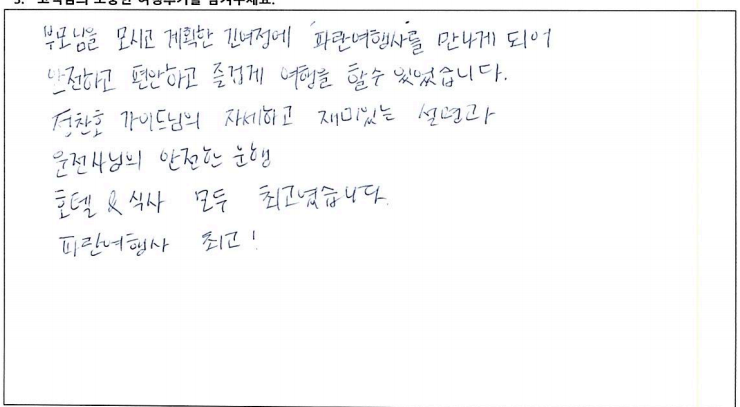 3. 고객님의 소중한 여행후기를 남겨주세요.
부모님을 모시고 계획한 긴여정에 파란여행사를 만나게 되어
안전하고 편안하고 즐겁게 여행을 할수 있었습니다.
정찬호 가이드님의 자세하고 재미있는 설명과
운전사님의 안전한 운행
호텔 & 식사 모두 최고였습니다.
파란여행사 최고!